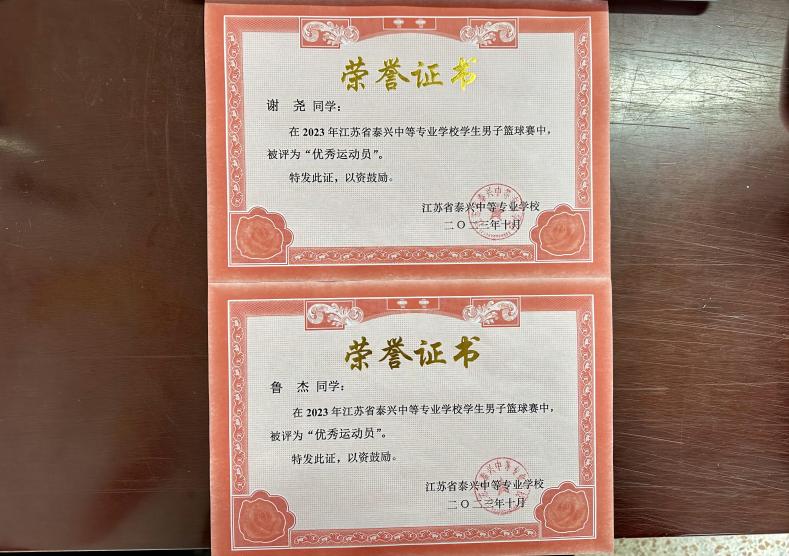 荣誉证书
谢 尧 同学：
在 2023 年江苏省泰兴中等专业学校学生男子篮球赛中，
被评为“优秀运动员”。
特发此证，以资鼓励。
江苏省泰兴中等专业学校
二〇二三年十月
荣誉证书
鲁 杰 同学：
在 2023 年江苏省泰兴中等专业学校学生男子篮球赛中，
被评为“优秀运动员”。
特发此证，以资鼓励。
江苏省泰兴中等专业学校
二〇二三年十月